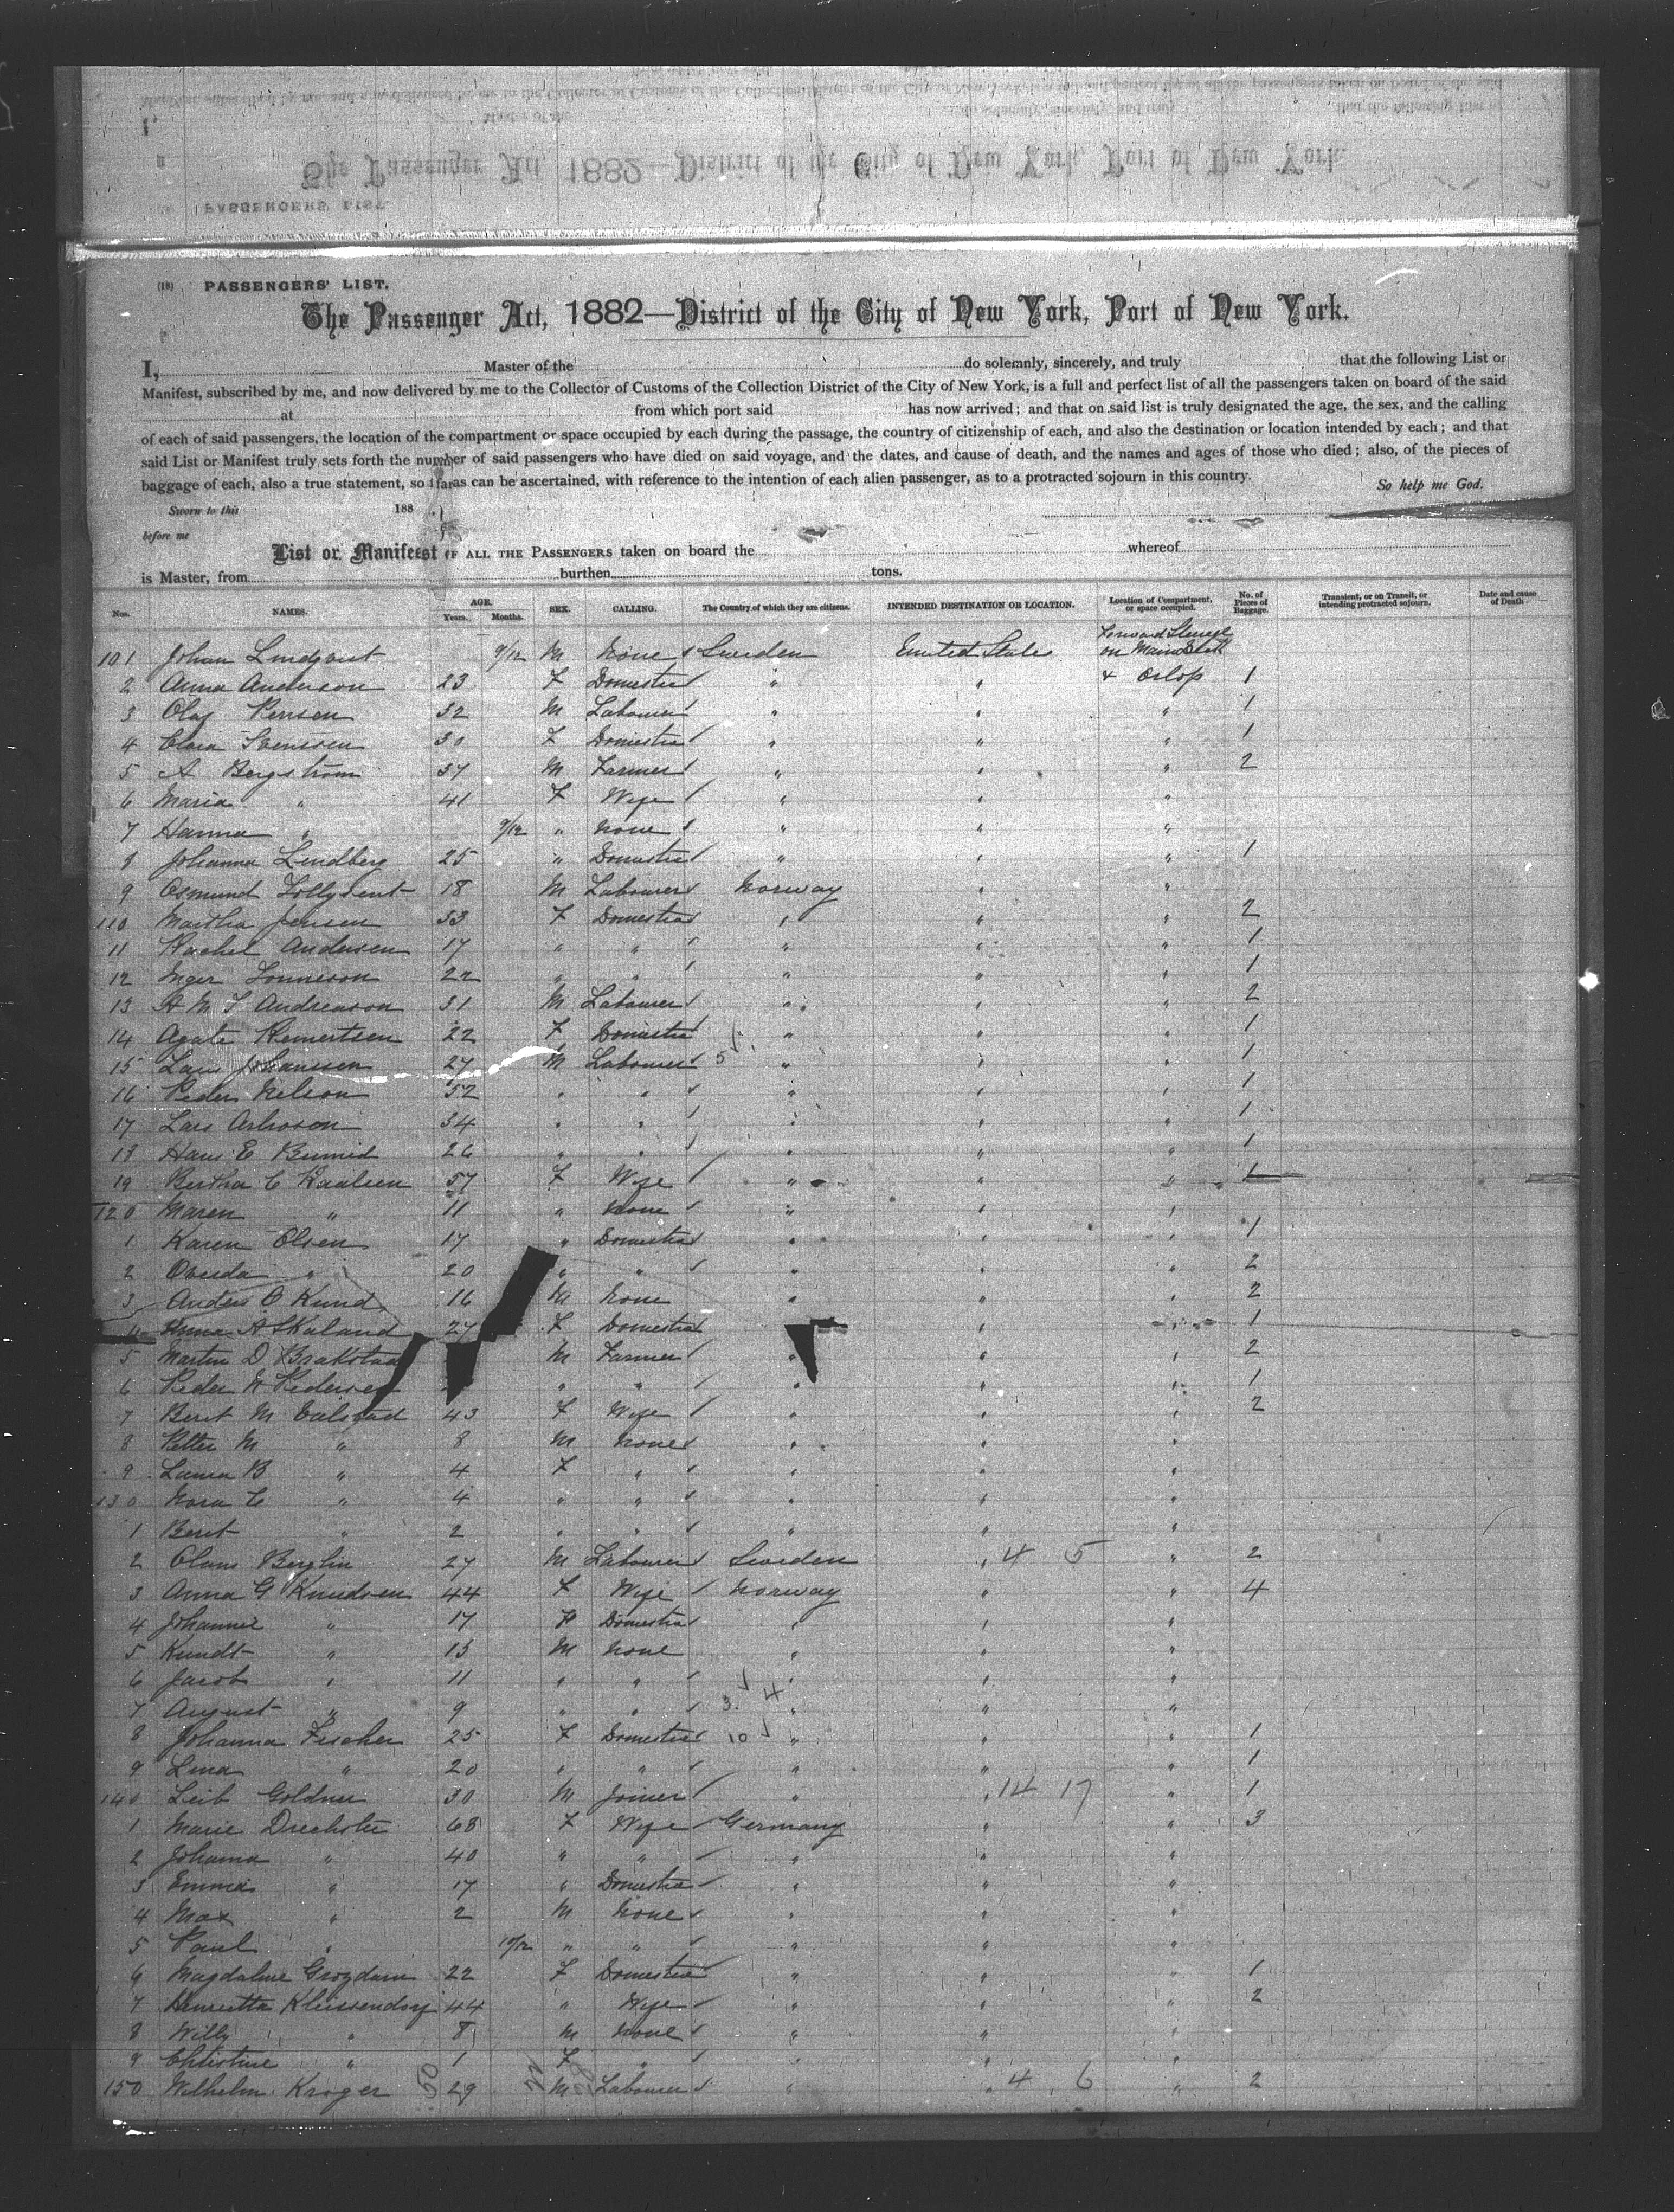 (18) PASSENGERS' LIST.
The Passenger Act, 1882—District of the City of New York, Port of New York.
I, Master of the do solemnly, sincerely, and truly that the following List or
Manifest, subscribed by me, and now delivered by me to the Collector of Customs of the Collection District of the City of New York, is a full and perfect list of all the passengers taken on board of the said
at from which port said has now arrived; and that on said list is truly designated the age, the sex, and the calling
of each of said passengers, the location of the compartment or space occupied by each during the passage, the country of citizenship of each, and also the destination or location intended by each; and that
said List or Manifest truly sets forth the number of said passengers who have died on said voyage, and the dates, and cause of death, and the names and ages of those who died; also, of the pieces of
baggage of each, also a true statement, so far as can be ascertained, with reference to the intention of each alien passenger, as to a protracted sojourn in this country. So help me God.
Sworn to this 188
before me
List or Manifest OF ALL THE PASSENGERS taken on board the whereof
is Master, from burthen tons.
Nos. NAMES. AGE. Years. Months. SEX. CALLING. The Country of which they are citizens. INTENDED DESTINATION OR LOCATION. Location of Compartment, or space occupied. No. of Pieces of Baggage. Transient, or on Transit, or intending protracted sojourn. Date and cause of Death
101 Johan Lindqvist 9/12 M None Sweden United States Forward Steerage on Main Deck
2 Anna Anderson 23 F Domestic " " & Orlop 1
3 Olaf 32 M Labourer " " " 1
4 Clara Svenssen 30 F Domestic " " " 1
5 A Bergstrom 37 M Farmer " " " 2
6 Maria " 41 F Wife " " "
7 Hanna " 9/12 " None " " "
8 Johanna Lindberg 25 " Domestic " " " 1
9 Osmund 18 M Labourer Norway " "
110 Martha Jensen 33 F Domestic " " " 2
11 Rachel Andersen 17 " " " " " 1
12 Inger Tonneson 22 " " " " " 1
13 Andreason 31 M Labourer " " " 2
14 Agate Remertsen 22 F Domestic " " " 1
15 Lars Johanssen 27 M Labourer 5 " " " 1
16 Peder Nelson 52 " " " " " 1
17 Lars 34 " " " " " 1
18 Hans E 26 " " " " " 1
19 Bertha C 57 F Wife " " " 1
120 Maren " 11 " None " " "
1 Karen Olsen 17 " Domestic " " " 1
2 " 20 " " " " " 2
3 Anders O Kund 16 M None " " " 2
4 Anna A Skaland 27 F Domestic " " " 1
5 Martin D Brakstad M Farmer " " " 2
6 Peder N Pedersen " " " " " 1
7 Berit M 43 F Wife " " " 2
8 Petter M " 8 M None " " "
9 Laura B " 4 F " " " "
130 Nora C " 4 " " " " "
1 Berit " 2 " " " " "
2 Olaus Berglin 27 M Labourer Sweden " 4 5 " 2
3 Anna G Knudsen 44 F Wife Norway " " 4
4 Johanne " 17 F Domestic " " "
5 Kundt " 13 M None " " "
6 Jacob " 11 " " " " "
7 August " 9 " " 3 4 " " "
8 Johanna Fischer 25 F Domestic 10 " " " 1
9 Lina " 20 " " " " " 1
140 Leib Goldner 30 M Joiner " " 14 17 " 1
1 Marie Drechsler 68 F Wife Germany " " 3
2 Johanna " 40 " " " " "
3 Emma " 17 " Domestic " " "
4 Max " 2 M None " " "
5 Paul " 10/12 " " " " "
6 Magdaline 22 F Domestic " " " 1
7 Henrietta Kleissendorf 44 " Wife " " " 2
8 Willy " 8 M None " " "
9 Christine " 1 F " " " "
150 Wilhelm Kroger 50 29 M Labourer " " 4 6 " 2